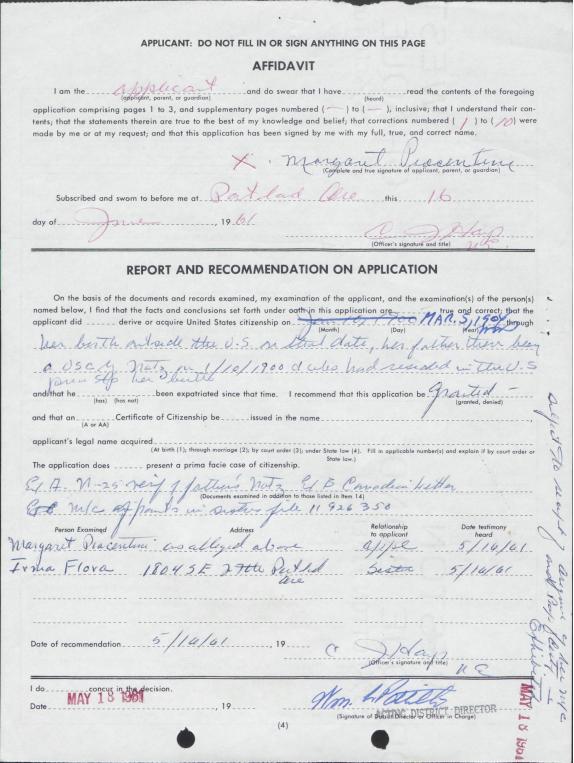 APPLICANT: DO NOT FILL IN OR SIGN ANYTHING ON THIS PAGE
AFFIDAVIT
I am the applicant and do swear that I have read the contents of the foregoing
(applicant, parent, or guardian) (heard)
application comprising pages 1 to 3, and supplementary pages numbered ( — ) to ( — ), inclusive; that I understand their con-
tents; that the statements therein are true to the best of my knowledge and belief; that corrections numbered ( 1 ) to ( 10 ) were
made by me or at my request; and that this application has been signed by me with my full, true, and correct name.
X . Margaret Piacentini
(Complete and true signature of applicant, parent, or guardian)
Subscribed and sworn to before me at Portlad Ore this 16
day of , 19 61
(Officer's signature and title)
REPORT AND RECOMMENDATION ON APPLICATION
On the basis of the documents and records examined, my examination of the applicant, and the examination(s) of the person(s)
named below, I find that the facts and conclusions set forth under oath in this application are true and correct; that the
applicant did derive or acquire United States citizenship on MAR. 3, through
(Month) (Day) (Year)
her birth outside the U.S. on that date, her father then being
a USC by Natz on 1/10/1900 & who had resided in the U.S
prior to her birth
and that he been expatriated since that time. I recommend that this application be granted -
(has) (has not) (granted, denied)
and that an Certificate of Citizenship be issued in the name
(A or AA)
applicant's legal name acquired
(At birth (1); through marriage (2); by court order (3); under State law (4). Fill in applicable number(s) and explain if by court order or
State law.)
The application does present a prima facie case of citizenship.
Ex A. N-25 verif of fathers Natz Ex B Canadian letter
(Documents examined in addition to those listed in Item 14)
Ex C m/c of parents in sisters file 11 926 350
Person Examined Address Relationship to applicant Date testimony heard
Margaret Piacentini as alleged above 5/16/61
Irma Flora 1804 SE 27th Portld Sister 5/16/61
Ore
Date of recommendation 5/16/61 , 19
(Officer's signature and title)
I do concur in the decision.
MAY 18 1961
Date , 19
ACTING DISTRICT DIRECTOR
(Signature of District Director or Officer in Charge)
(4)
MAY 18 1961